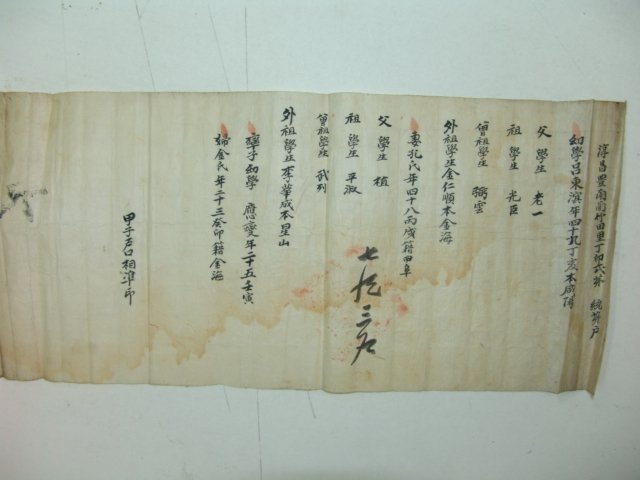 淳昌豊南面竹田里丁卯式第 統第戶
幼學呂東濱年四十九丁亥本咸陽
父 學生 老一
祖 學生 光臣
曾祖學生 弼雲
外祖學生金仁順本金海
妻孔氏年四十八丙戌籍曲阜
父 學生 植
祖 學生 平淑
曾祖學生 武列
外祖學生李華成本星山
率子幼學 應燮年二十五壬寅
婦金氏年二十三癸卯籍金海
七統三戶
甲子戶口相準印